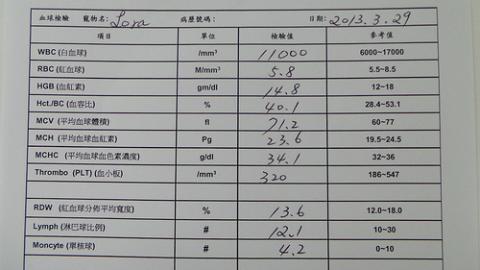 血球檢驗 寵物名: Lora 病歷號碼: 日期: 2013.3.29
項目 單位 檢驗值 參考值
WBC (白血球) /mm³ 11000 6000~17000
RBC (紅血球) M/mm³ 5.8 5.5~8.5
HGB (血紅素) gm/dl 14.8 12~18
Hct./BC (血容比) % 40.1 28.4~53.1
MCV (平均血球體積) fl 71.2 60~77
MCH (平均血球血紅素) Pg 23.6 19.5~24.5
MCHC (平均血球血色素濃度) g/dl 34.1 32~36
Thrombo (PLT) (血小板) /mm³ 320 186~547
RDW (紅血球分佈平均寬度) % 13.6 12.0~18.0
Lymph (淋巴球比例) # 12.1 10~30
Moncyte (單核球) # 4.2 0~10